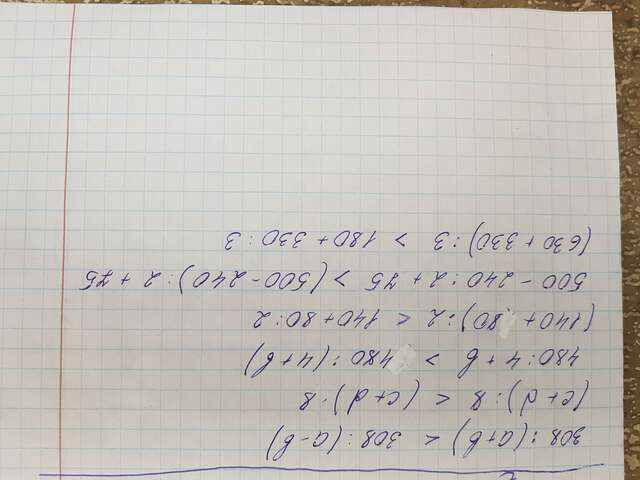 308 : (a+b) < 308 : (a-b)
(c+d) : 8 < (c+d) · 8
480 : 4 + b > 480 : (4+b)
(140+80) : 2 < 140+80 : 2
500 - 240 : 2 + 75 > (500-240) : 2 + 75
(630+330) : 3 > 180+330 : 3